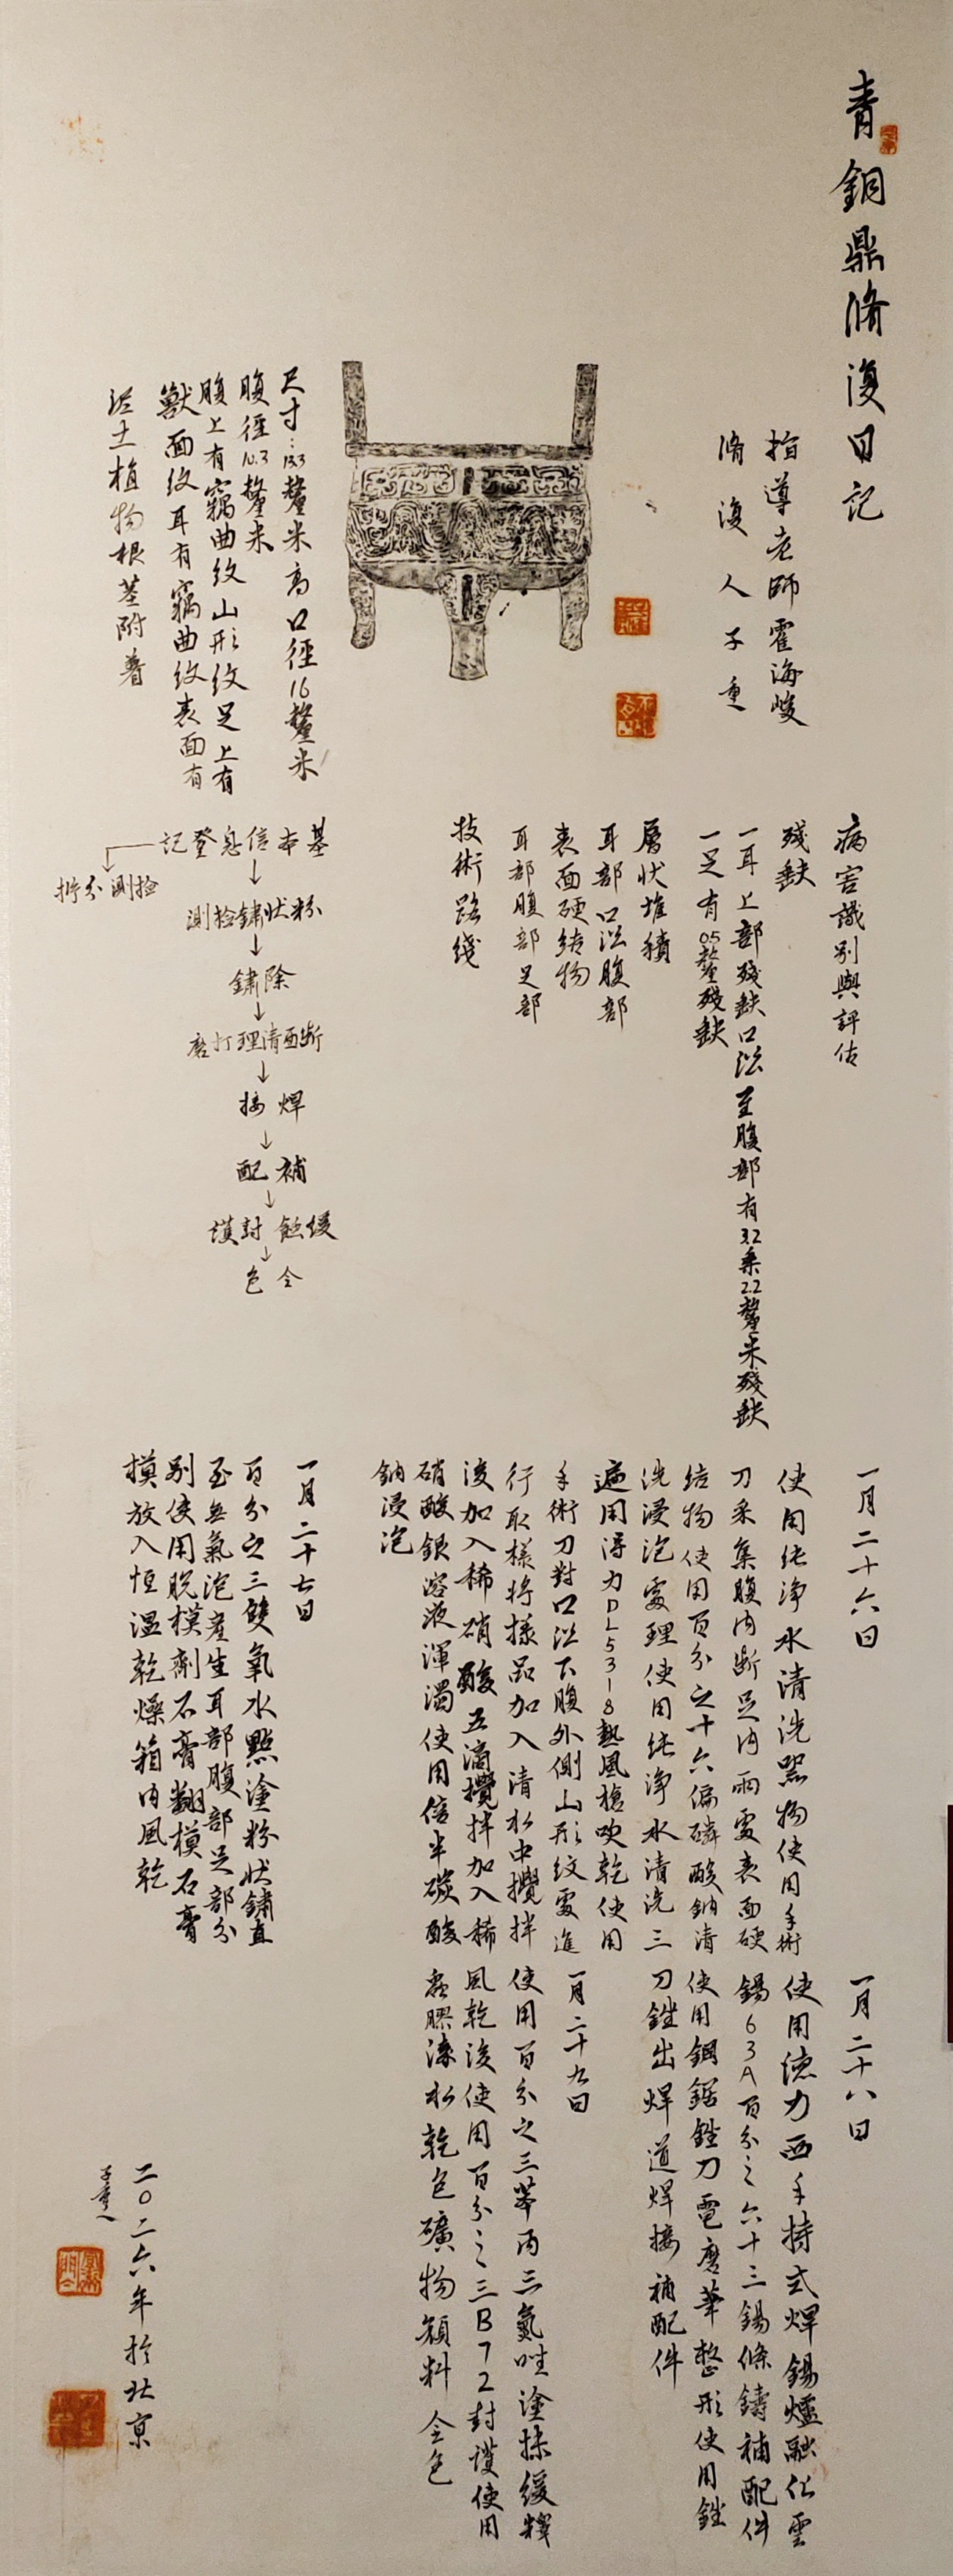 青銅鼎脩復日記
指導老師霍海峻
脩復人子重
尺寸：13.3釐米高口徑16釐米
腹徑10.3釐米
腹上有竊曲紋山形紋足上有
獸面紋耳有竊曲紋表面有
泥土植物根莖附着
病害識別與評估
殘缺
一耳上部殘缺口沿至腹部有3.2乘2.2釐米殘缺
一足有0.5釐殘缺
層狀堆積
耳部口沿腹部
表面硬結物
耳部腹部足部
技術路綫
基本信息登記
檢測分析
粉狀鏽檢測
除鏽
斷面清理打磨
焊接
補配
緩蝕封護
全色
一月二十六日
使用純淨水清洗器物使用手術
刀采集腹内斷足内兩處表面硬
結物使用百分之十六偏磷酸鈉清
洗浸泡處理使用純淨水清洗三
遍用得力DL5318熱風槍吹乾使用
手術刀對口沿下腹外側山形紋處進
行取樣將樣品加入清水中攪拌
後加入稀硝酸五滴攪拌加入稀
硝酸銀溶液渾濁使用倍半碳酸
鈉浸泡
一月二十七日
百分之三雙氧水點塗粉狀鏽直
至無氣泡産生耳部腹部足部分
别使用脱模劑石膏翻模石膏
模放入恒温乾燥箱内風乾
一月二十八日
使用德力西手持式焊錫爐融化雲
錫63A百分之六十三錫條鑄補配件
使用鋼鋸銼刀電磨筆整形使用銼
刀銼出焊道焊接補配件
一月二十九日
使用百分之三苯丙三氮唑塗抹緩釋
風乾後使用百分之三B72封護使用
蟲膠漆水乾色礦物顔料全色
二〇二六年於北京
子重